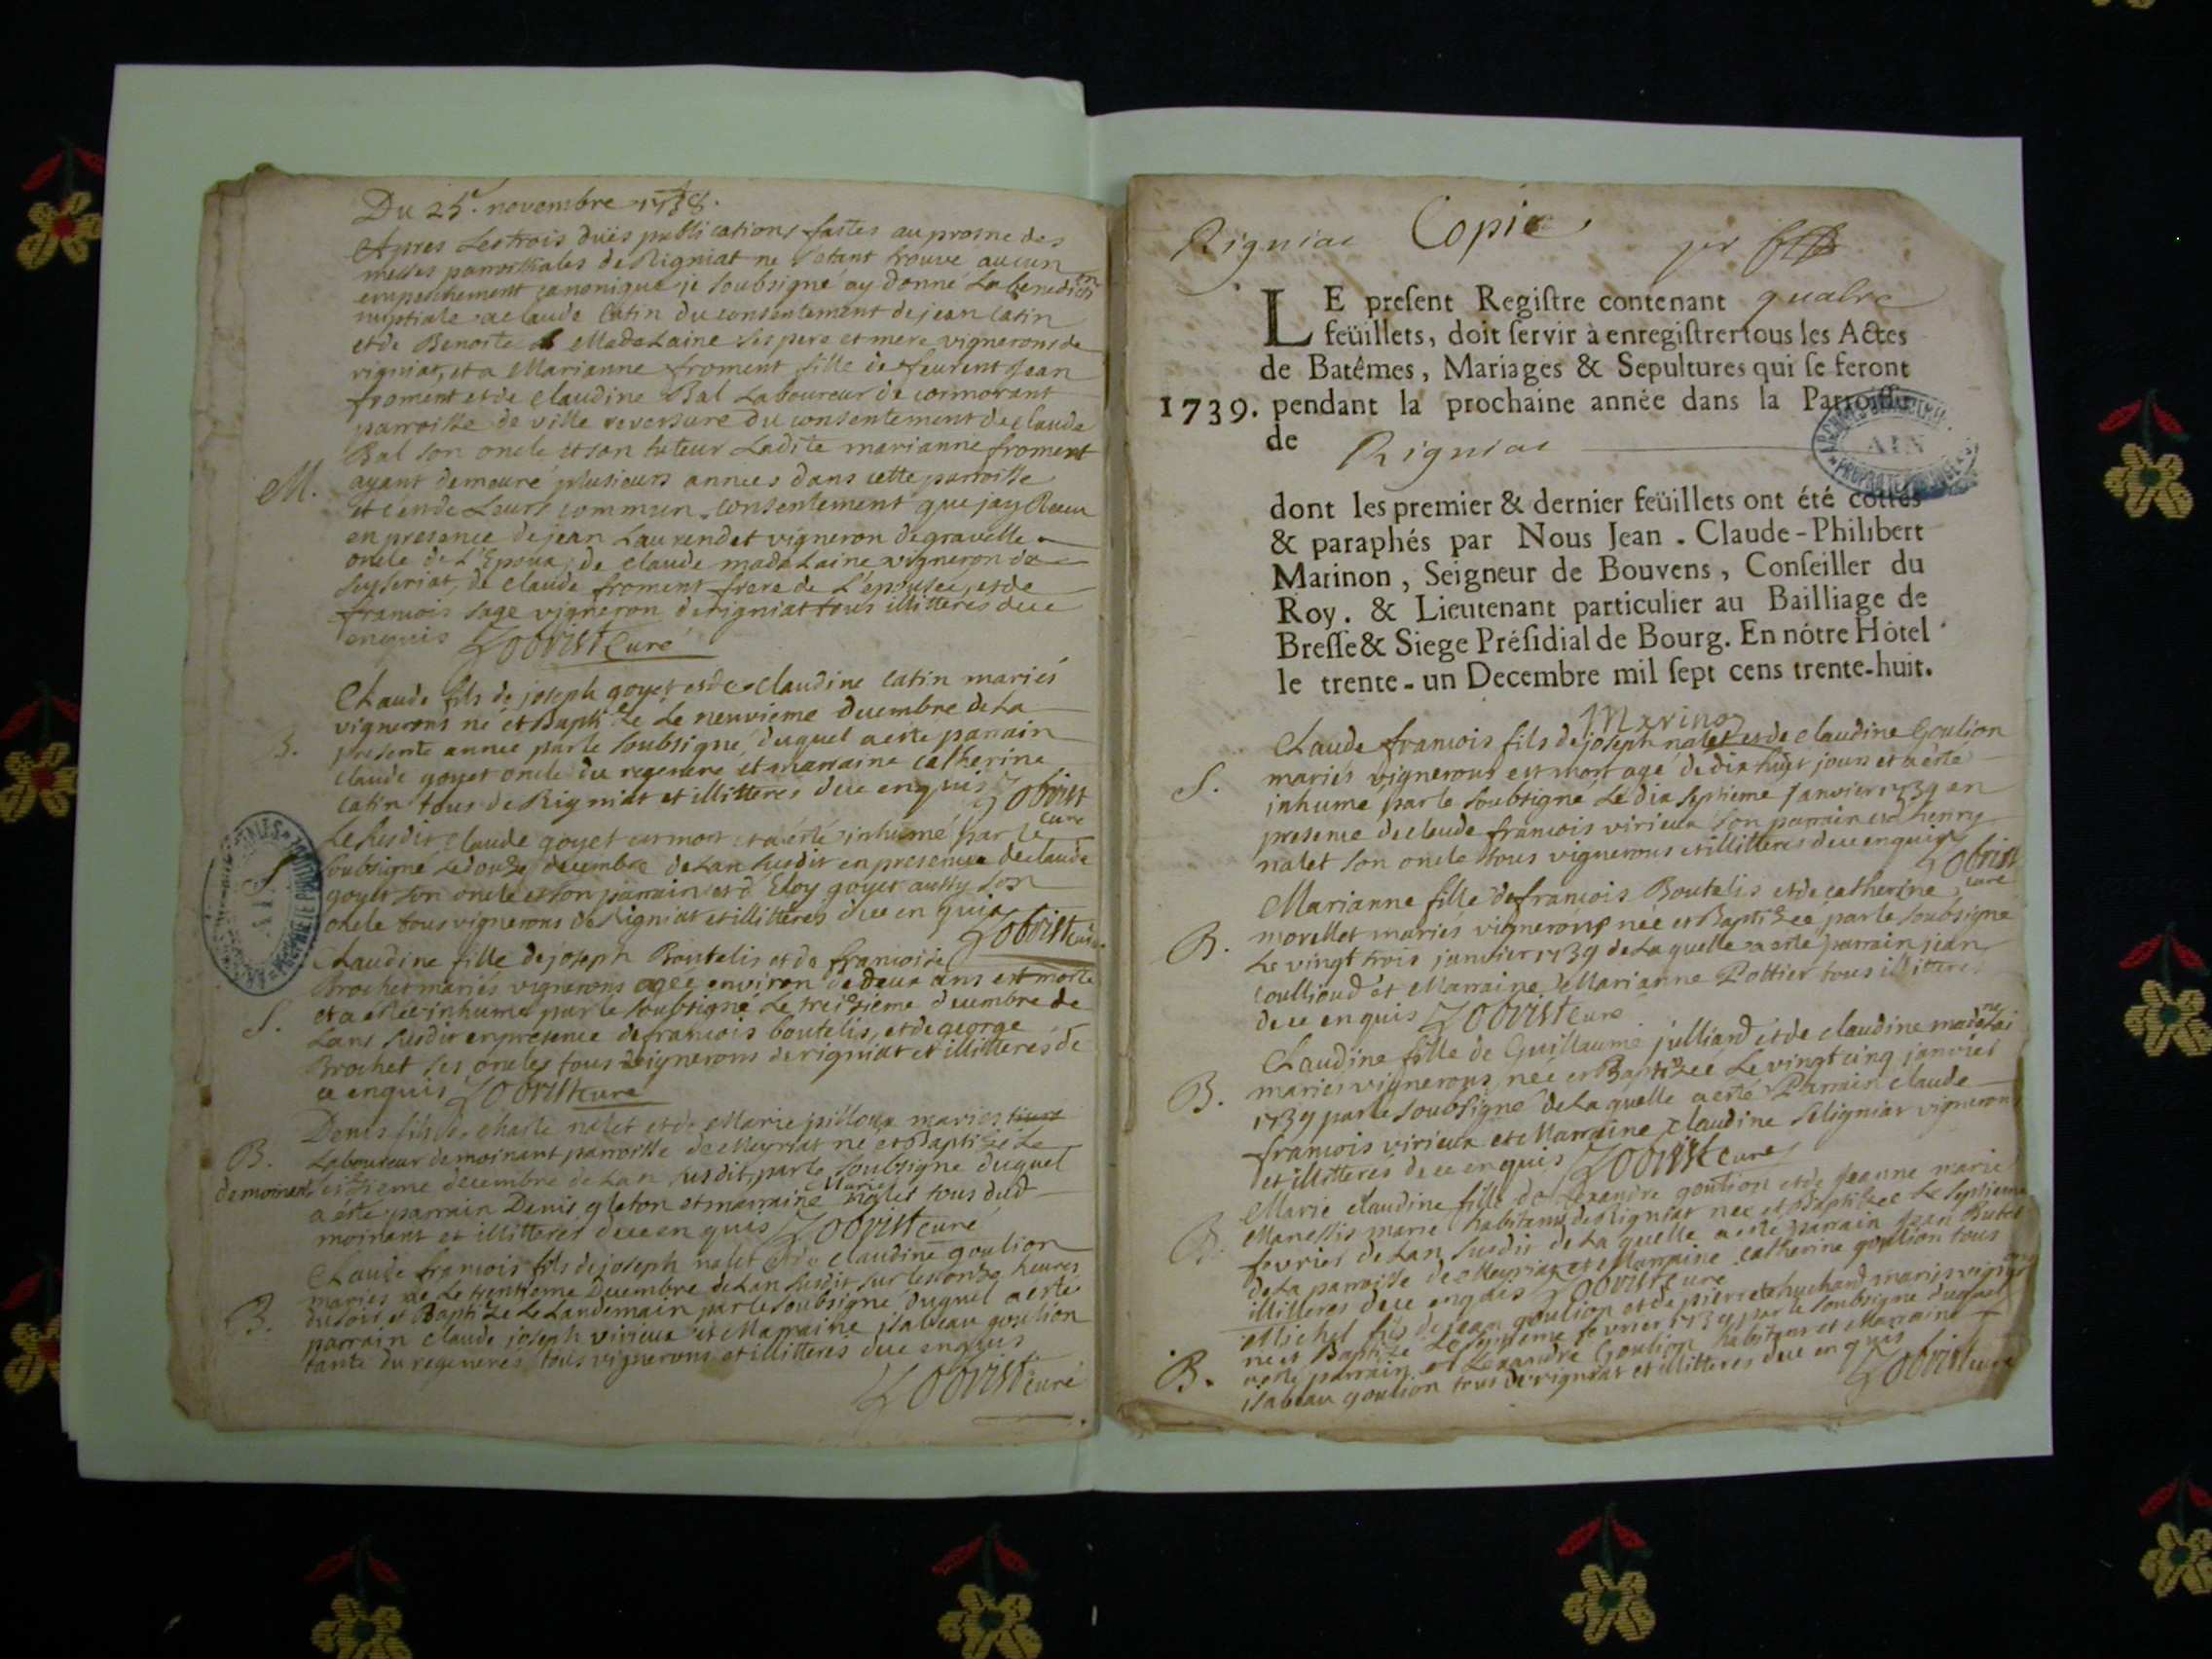 Du 25.e novembre 1738.
Apres les trois duës publications faites au prosne des
messes parroissiales de Rigniat ne setant trouvé aucun
empeschement canonique je soubsigné ay donné la benedicti on
nuptiale a claude Catin du consentement de jean Catin
et de Benoite Madelaine ses pere et mere vignerons de
rigniat, et a Marianne froment fille de feu jean
froment et de claudine Bal Laboureur de cormorant
parroisse de ville reversure du consentement de claude
Bal son oncle et son tuteur Ladite marianne froment
M. ayant demeuré plusieurs années dans cette parroisse
et de Leurs commun consentement que jay Receu
en presence de jean Laurendet vigneron de gravelle
oncle de L'Epoux, de claude madelaine vigneron de
seyseriat, de claude froment frere de L'épousée, et de
francois sage vigneron de rigniat tous illitteres de ce
enquis Zobrist Curé
Claude fils de joseph goyet et de claudine Catin mariés
vignerons né et Baptizé Le neuvieme decembre de La
B. presente année par le soubsigné, duquel a esté parrain
claude goyet oncle du regeneré et marraine Catherine
Catin tous de Rigniat et illitteres de ce enquis Zobrist
Curé
S Le susdit claude goyet est mort et a esté inhumé par le
soubsigné Le douze decembre de Lan susdit en presence de claude
goyet son oncle et son parrain et d'Eloy goyet aussy son
oncle tous vignerons de Rigniat et illitteres de ce enquis
Zobrist Curé
Claudine fille de joseph Boutelis et de francoise
Brochet mariés vignerons agée environ de deux ans est morte
S. et a estée inhumée par le soubsigné Le treizieme decembre de
Lans susdit en presence de francois boutelis, et de george
Brochet ses oncles tous vignerons de rigniat et illitteres de
ce enquis Zobrist Curé
Denis fils de charle nalet et de Marie pilloux mariés
B. Laboureur de moinant parroisse de Meyriat né et Baptizé Le
de moinant zieme decembre de Lan susdit, par le soubsigné duquel
Marie
a esté parrain Denis gleton et marraine nalet tous dud
moinant et illitteres de ce enquis Zobrist Curé
Claude francois fils de joseph nalet et de claudine goulion
mariés né Le trentieme Decembre de Lan susdit sur les onze heures
du soir et Baptizé Le Landemain par le soubsigné, Duquel a esté
B. parrain claude joseph virieux et Marraine jsabeau goulion
tante du regeneré, tous vignerons et illitteres de ce enquis
Zobrist Curé
Rigniat Copie
LE present Registre contenant quatre
feüillets, doit servir à enregistrer tous les Actes
de Batêmes, Mariages & Sepultures qui se feront
1739. pendant la prochaine année dans la Parroisse
de Rigniat
ARCHIVES
AIN
PROPRIETE PUBLIQUE
dont les premier & dernier feüillets ont été cottés
& paraphés par Nous Jean - Claude-Philibert
Marinon, Seigneur de Bouvens, Conseiller du
Roy. & Lieutenant particulier au Bailliage de
Bresse & Siege Présidial de Bourg. En nôtre Hôtel
le trente-un Decembre mil sept cens trente-huit.
Marinon
Claude francois fils de joseph nalet et de claudine Goulion
S. mariés vignerons est mort agé de dix huit jours et a esté
inhumé par le soubsigné Le dix septieme janvier 1739 en
presence de claude francois virieux son parrain et henry
nalet son oncle tous vignerons et illitteres de ce enquis
Zobrist
Curé
Marianne fille de francois Boutelis et de catherine
B. morellet mariés vignerons née et Baptizée par le soubsigné
Le vingt trois janvier 1739 de La quelle a esté parrain jean
coullioud et Marraine Marianne Pottier tous illitteres
de ce enquis Zobrist Curé
Claudine fille de Guillaume julliard et de claudine madelai ne
B. mariés vignerons née et Baptizée Le vingt cinq janvier
1739 par le soubsigné de La quelle a esté Parrain claude
francois virieux et Marraine claudine seligniat vignerons
et illitteres de ce enquis Zobrist Curé
Marie claudine fille de Lexandre goulion et de jeanne marie
B. Manessis marie habitans de Rigniat née et Baptizée Le septieme
fevrier de Lan susdit de La quelle a esté parrain jean Butet
de La parroisse de Meyriat et Marraine Catherine goulion tous
illitteres de ce enquis Zobrist Curé
Michel fils de jean goulion et de pierrete huchard mariés vigne rons
né et Baptizé Le septieme fevrier 1739 par le soubsigné duquel
B. a esté parrain Lexandre Goulion habitans et Marraine
jsabeau goulion tous de rigniat et illitteres de ce enquis
Zobrist Curé